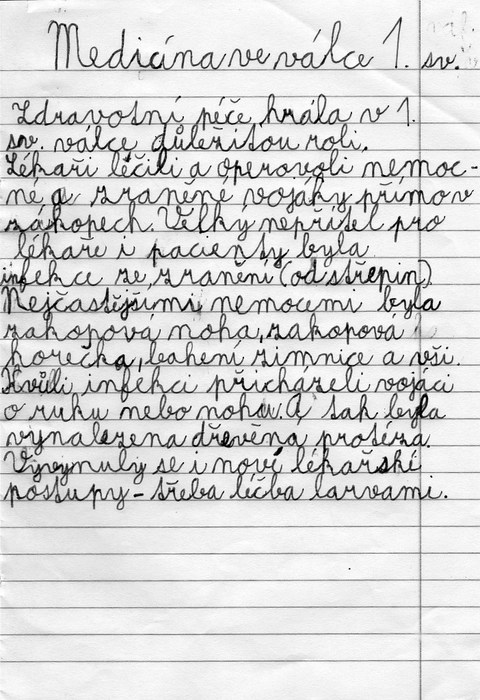 Medicína ve válce 1. sv.
Zdravotní péče hrála v 1.
sv. válce důležitou roli.
Lékaři léčili a operovoli nemoc-
né a zraněné vojáky přímo v
zákopech. Velký nepřítel pro
lékaře i pacienty byla
infekce ze zranění (od střepin)
Nejčastějšími nemocemi byla
zakopová noha, zakopová
horečka, bahení zimnice a vši.
Kvůli infekci přicházeli vojáci
o ruku nebo nohu. A tak byla
vynalezena dřevěná protéza.
Vyvynuly se i nové lékařské
postupy - třeba léčba larvami.